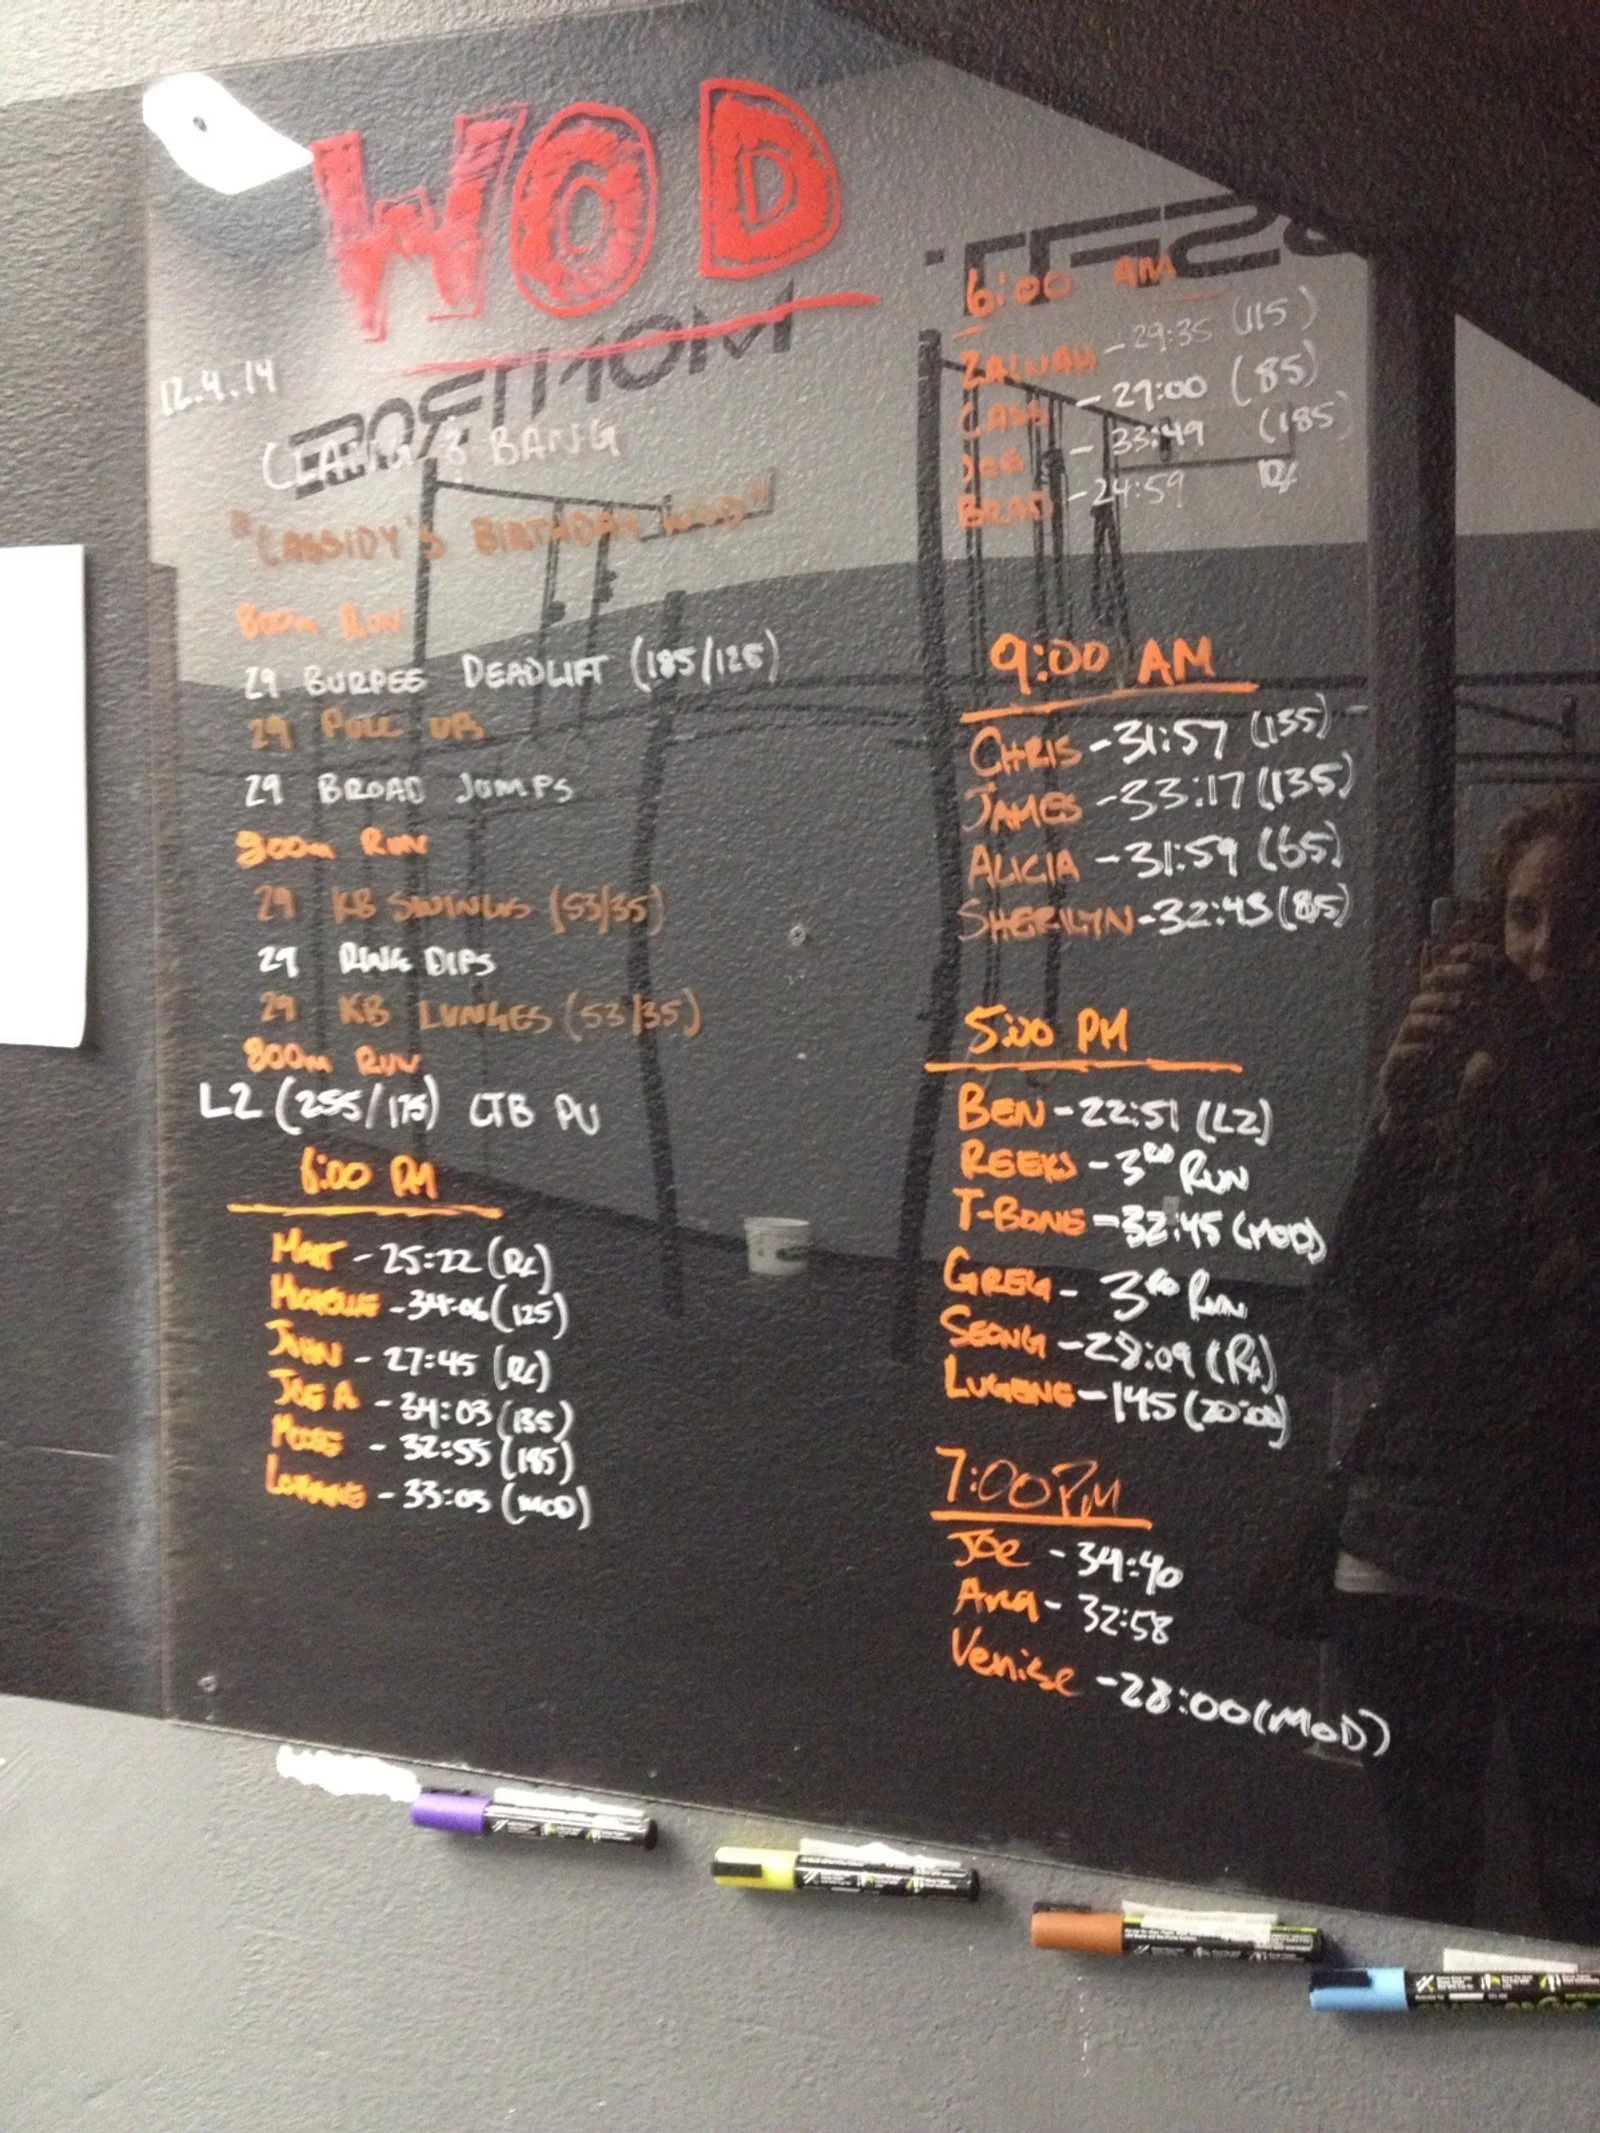 WOD
12.4.14
CLANG & BANG
"CASSIDY'S BIRTHDAY WOD"
800m RUN
29 BURPEE DEADLIFT (185/125)
29 PULL UP
29 BROAD JUMPS
800m RUN
29 KB SWINGS (53/35)
29 RING DIPS
29 KB LUNGES (53/35)
800m RUN
L2 (255/175) CTB PU
6:00 PM
MATT - 25:22 (RX)
MICHELLE - 34:06 (125)
JOHN - 27:45 (RX)
JOE A - 34:03 (135)
MOOSE - 32:55 (185)
LORRAINE - 33:03 (MOD)
6:00 AM
ZAINAH - 29:35 (115)
CASS - 29:00 (85)
JOE - 33:49 (185)
BRAD - 24:59 RX
9:00 AM
CHRIS - 31:57 (155)
JAMES - 33:17 (135)
ALICIA - 31:59 (65)
SHERILYN - 32:43 (85)
5:00 PM
BEN - 22:51 (L2)
REEKS - 3RD RUN
T-BONE - 32:45 (MOD)
GREG - 3RD RUN
SEONG - 28:09 (RX)
LUGENE - 145 (20:00)
7:00 PM
Joe - 34:40
Ana - 32:58
Venise - 28:00 (MOD)